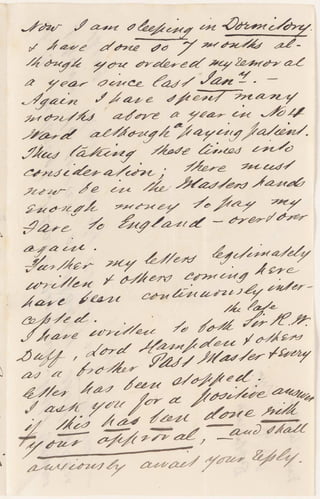 Now I am sleeping in Dormitory
& have done so 7 months al-
though you ordered my removal
a year since last Jany. —
Again I have spent many
months above a year in No 4
Ward although a paying patient.
Thus taking these times into
consideration, there must
now be in the Masters hands
enough money to pay my
Fare to England — over & over
again.
Further my letters legitimately
written & others coming here
have been continuously inter-
cepted.
I have written to both the late Sir R. W.
Duff, Lord Hampden & others
as a brother Past Master & every
letter has been stopped.
I ask you for a positive answer
if this has been done with
your approval, — and shall
anxiously await your reply.